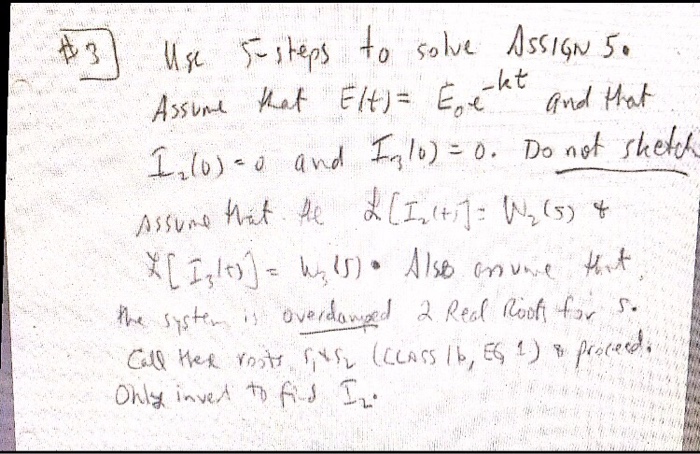 #3 Use 5-steps to solve ASSIGN 5.
Assume that E(t) = E₀e^-kt and that
I₂(0) = 0 and I₃(0) = 0. Do not sketch
Assume that the ℒ[I₂(t)] = W₂(s) &
ℒ[I₃(t)] = W₃(s). Also assume that
the system is overdamped 2 Real Roots for s.
Call these roots s₁ & s₂ (CLASS 16, EG 1) & proceed.
Only invert to find I₂.